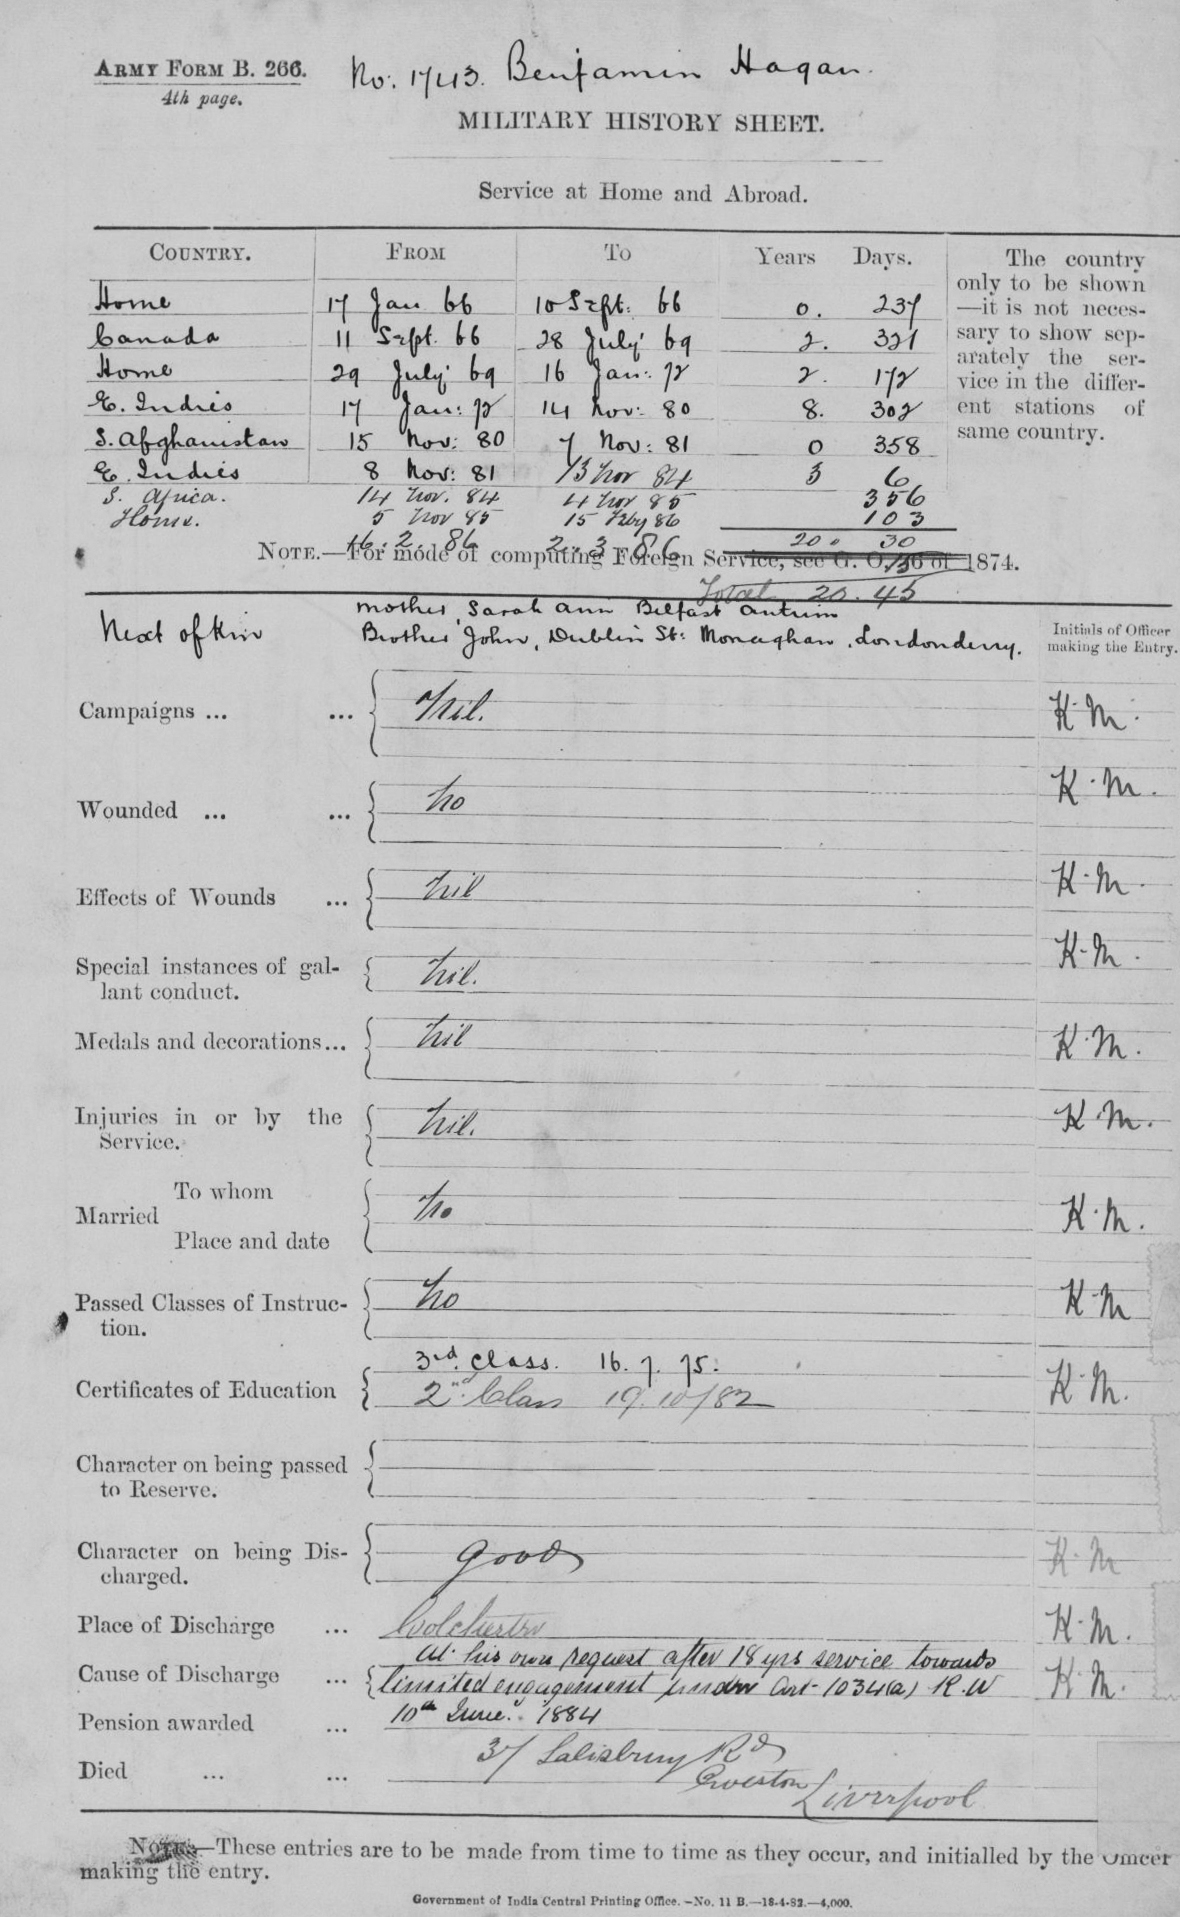 ARMY FORM B. 266.
4th page.
No. 1743. Benjamin Hagan.
MILITARY HISTORY SHEET.
Service at Home and Abroad.
COUNTRY. FROM TO Years Days.
Home 17 Jan 66 10 Sept: 66 0. 237
Canada 11 Sept. 66 28 July 69 2. 321
Home 29 July 69 16 Jan: 72 2. 172
E. Indies 17 Jan: 72 14 Nov: 80 8. 302
S. Afghanistan 15 Nov: 80 7 Nov: 81 0 358
E. Indies 8 Nov: 81 13 Nov 84 3 6
S. Africa. 14 Nov. 84 4 Nov 85 356
Home. 5 Nov 85 15 Feby 86 103
16. 2. 86 2. 3. 86 20 30
The country
only to be shown
—it is not neces-
sary to show sep-
arately the ser-
vice in the differ-
ent stations of
same country.
NOTE.—For mode of computing Foreign Service, see G. O. of 1874.
Total 20. 45
Next of Kin
Mother, Sarah Ann Belfast Antrim
Brother John, Dublin St: Monaghan, Londonderry.
Initials of Officer
making the Entry.
Campaigns ... ... Nil. K. M.
Wounded ... ... No K. M.
Effects of Wounds ... Nil K. M.
Special instances of gal-
lant conduct. Nil. K. M.
Medals and decorations... Nil K. M.
Injuries in or by the
Service. Nil. K. M.
To whom
Married No K. M.
Place and date
Passed Classes of Instruc-
tion. No K M
3rd. Class. 16. 7. 75.
Certificates of Education 2nd Class 19. 10/82 K M.
Character on being passed
to Reserve.
Character on being Dis-
charged. Good K. M
Place of Discharge ... Colchester K. M.
At his own request after 18 yrs service towards
Cause of Discharge ... limited engagement under Art- 1034(a) R. W K M.
Pension awarded ... 10th June. 1884
37 Salisbury Rd
Died ... ... Everton Liverpool
NOTE.—These entries are to be made from time to time as they occur, and initialled by the Officer
making the entry.
Government of India Central Printing Office.—No. 11 B.—18-4-82.—4,000.